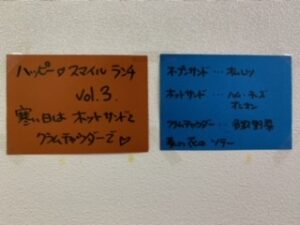 ハッピー♡スマイル ランチ
vol.3.
寒い日は ホットサンドと
クラムチャウダーで♡
オープンサンド…オムレツ
ホットサンド…ハム・チーズ
オニオン
クラムチャウダー…
ソテー